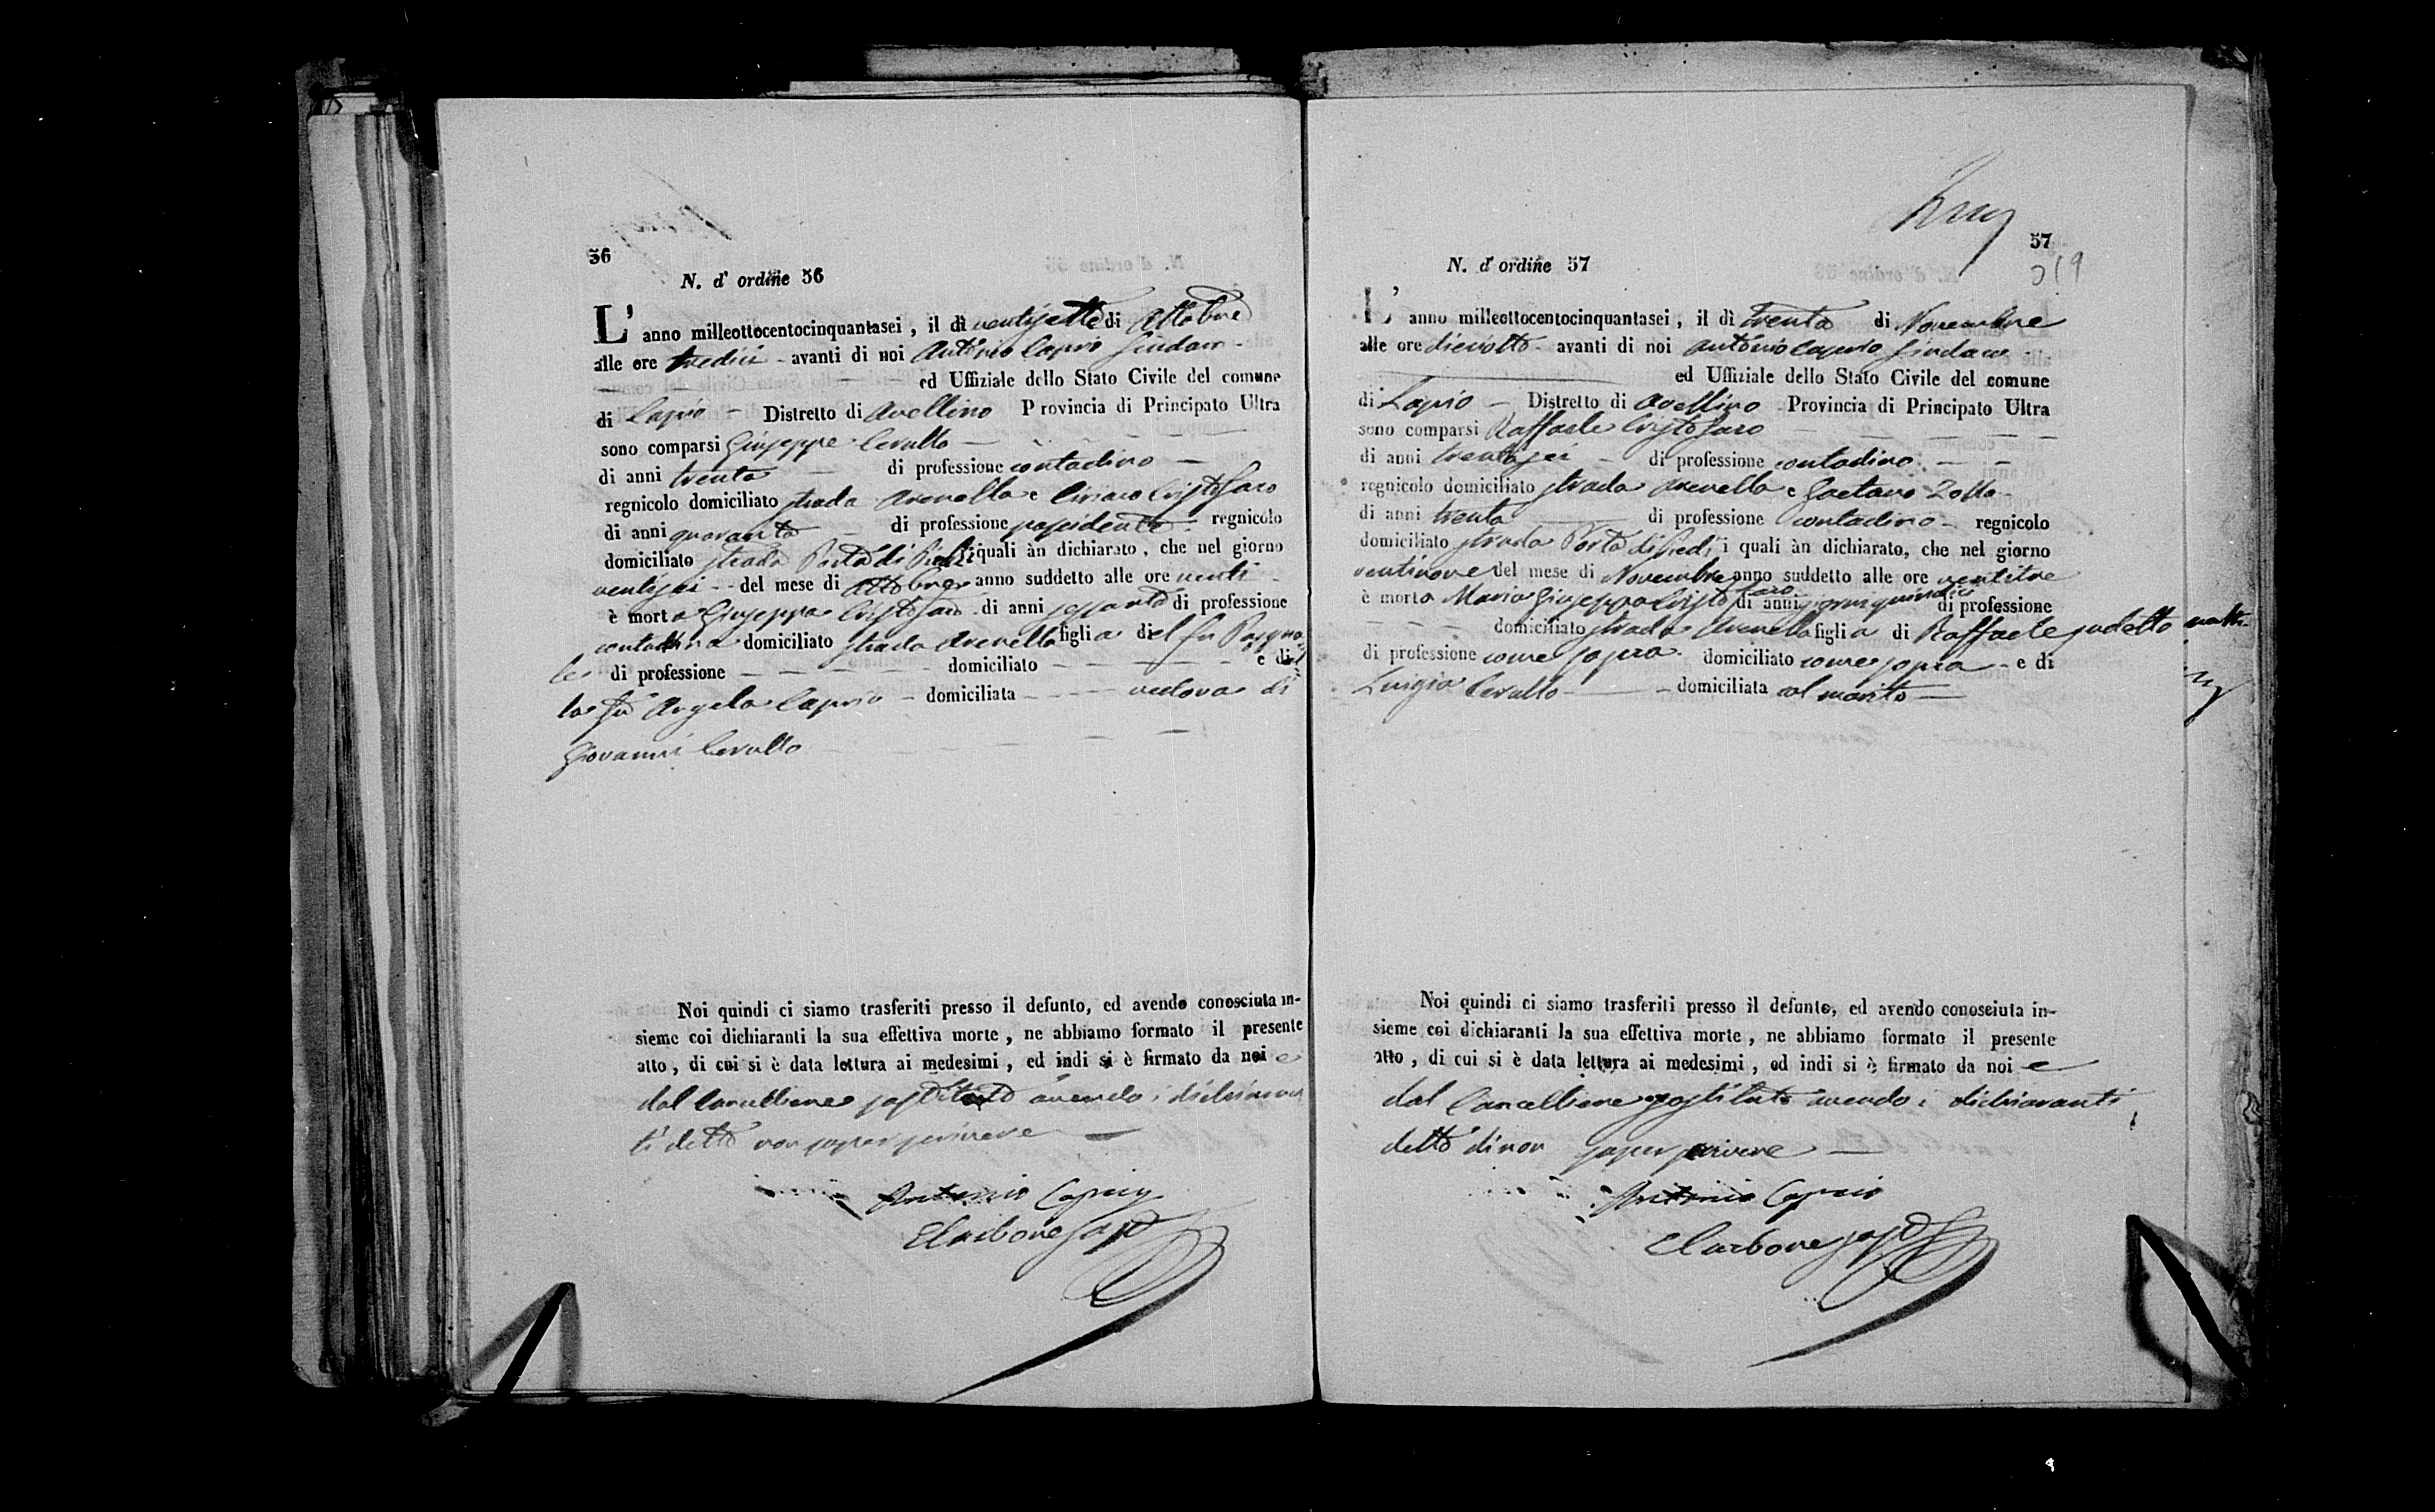 56
N. d' ordine 56
L' anno milleottocentocinquantasei, il dì ventisette di Ottobre
alle ore tredici avanti di noi Antonio Caprio Sindaco
ed Uffiziale dello Stato Civile del comune
di Lapio Distretto di Avellino Provincia di Principato Ultra
sono comparsi Giuseppe Cerullo
di anni trenta di professione contadino
regnicolo domiciliato strada Arenella e Ciriaco Cristofaro
di anni quaranta di professione possidente regnicolo
domiciliato strada Porta di Piedi i quali àn dichiarato, che nel giorno
ventisei del mese di Ottobre anno suddetto alle ore venti
è morta Giuseppa Cristofaro di anni sessanta di professione
contadina domiciliato strada Arenella figlia del fu Pasqua
le di professione domiciliato e del
la fu Angela Caprio domiciliata vedova di
Giovanni Cerullo
Noi quindi ci siamo trasferiti presso il defunto, ed avendo conosciuta in-
sieme coi dichiaranti la sua effettiva morte, ne abbiamo formato il presente
atto, di cui si è data lettura ai medesimi, ed indi si è firmato da noi e
dal Cancelliere sostituto avendo i dichiaran
ti detto non saper scrivere
Antonio Caprio
C Carbone sost
57
319
N. d' ordine 57
L' anno milleottocentocinquantasei, il dì trenta di Novembre
alle ore dieciotto avanti di noi Antonio Caprio Sindaco
ed Uffiziale dello Stato Civile del comune
di Lapio Distretto di Avellino Provincia di Principato Ultra
sono comparsi Raffaele Cristofaro
di anni trentasei di professione contadino
regnicolo domiciliato strada Arenella e Gaetano Zollo
di anni trenta di professione contadino regnicolo
domiciliato strada Porta di Piedi i quali àn dichiarato, che nel giorno
ventinove del mese di Novembre anno suddetto alle ore ventitre
è morta Maria Giuseppa Cristofaro di anni giorni quindici di professione
domiciliato strada Arenella figlia di Raffaele sudetto
di professione come sopra domiciliato come sopra e di
Luigia Cerullo domiciliata col marito
Noi quindi ci siamo trasferiti presso il defunto, ed avendo conosciuta in-
sieme coi dichiaranti la sua effettiva morte, ne abbiamo formato il presente
atto, di cui si è data lettura ai medesimi, ed indi si è firmato da noi e
dal Cancelliere sostituto avendo i dichiaranti
detto di non saper scrivere
Antonio Caprio
C Carbone sost